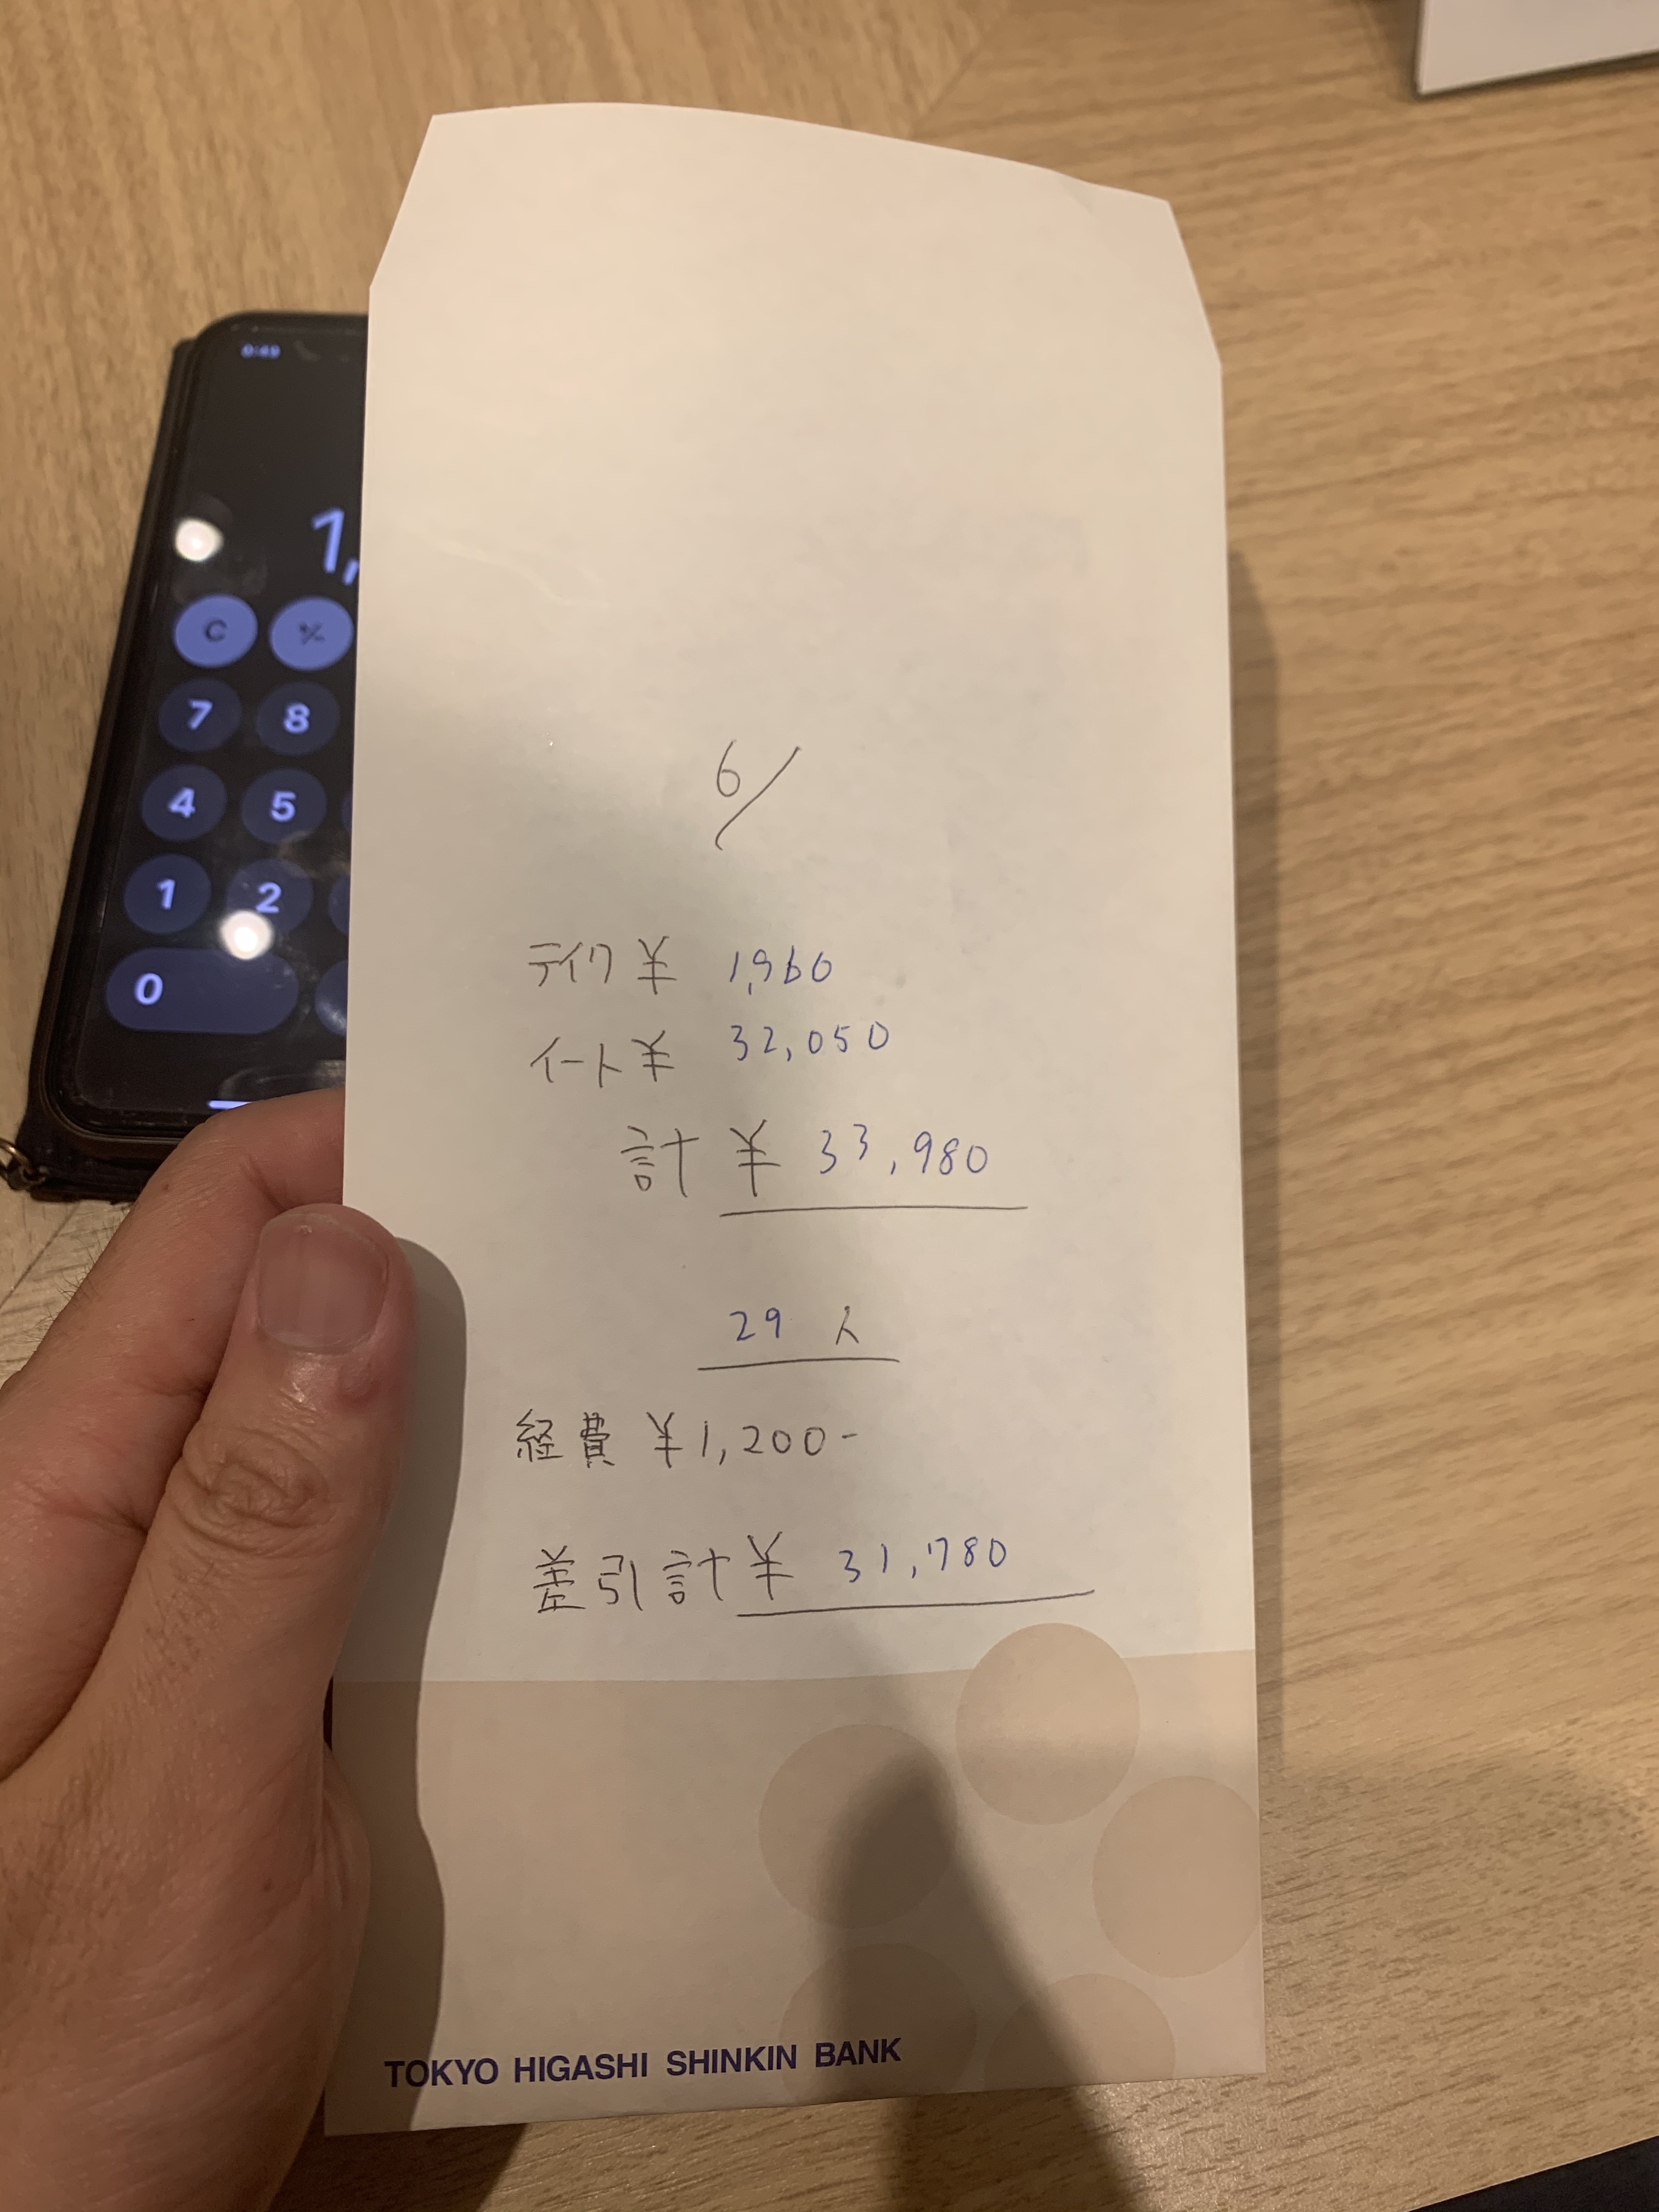 0:49
1,
C
7 8
4 5
1 2
0
6/
テイク ¥ 1,960
イート ¥ 32,050
計 ¥ 33,980
29 人
経費 ¥1,200-
差引計 ¥ 31,780
TOKYO HIGASHI SHINKIN BANK